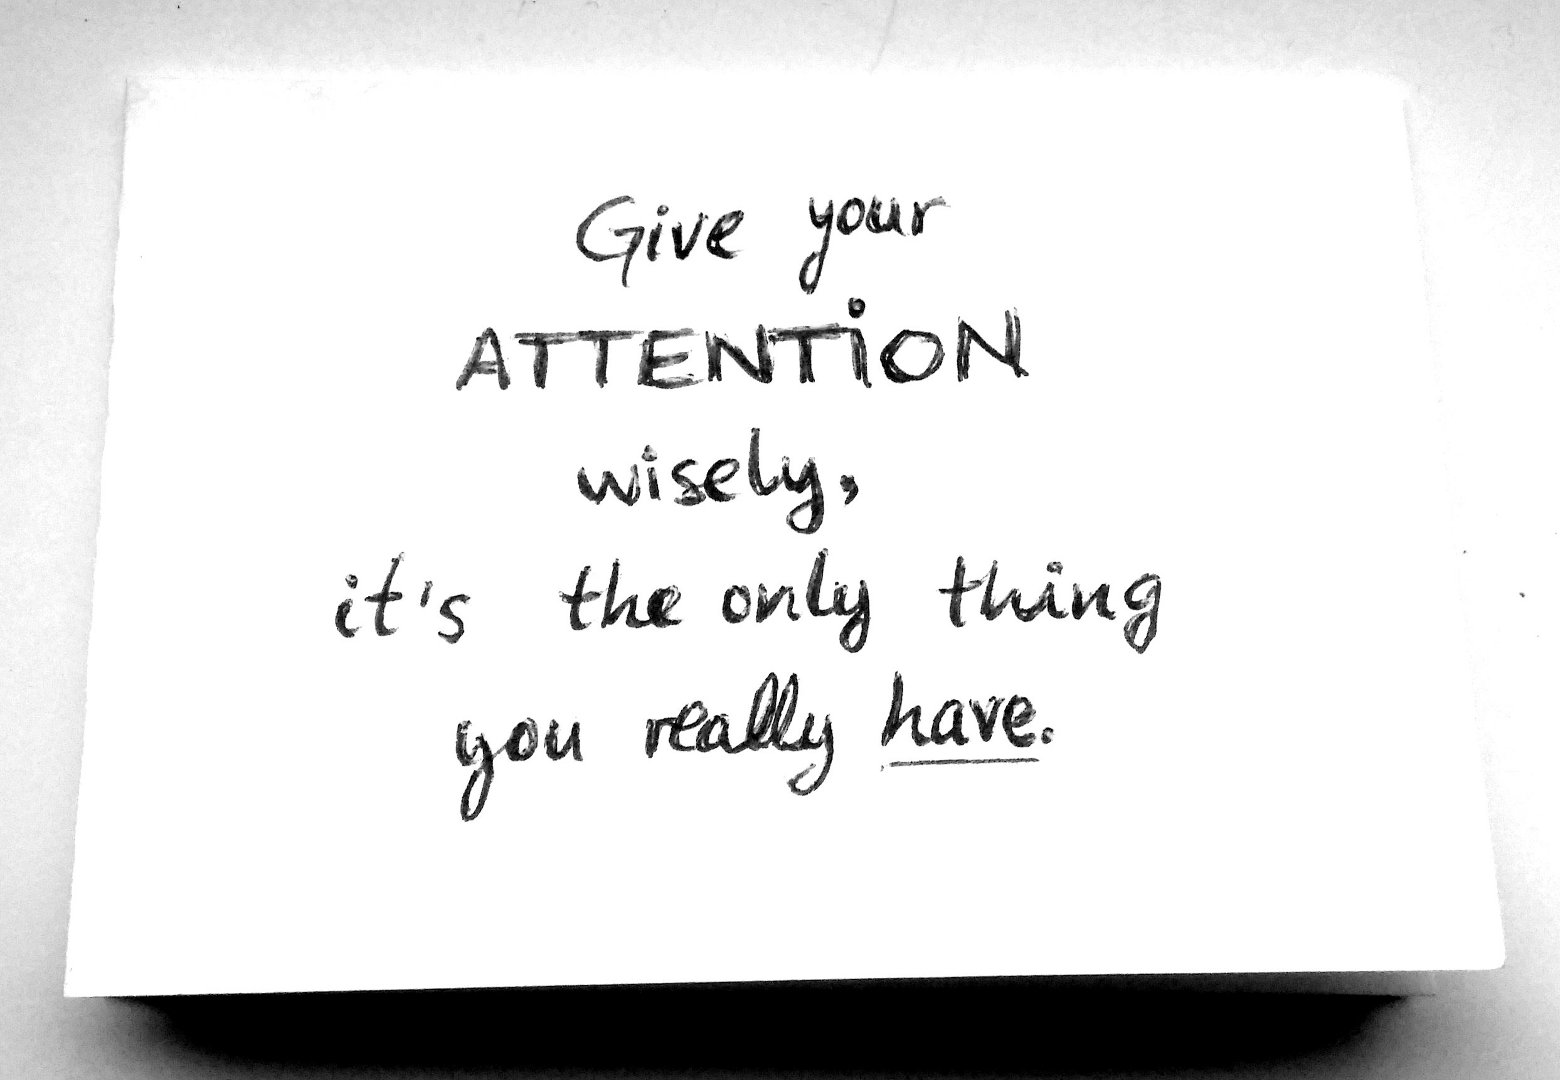 Give your
ATTENTiON
wisely,
it's the only thing
you really have.